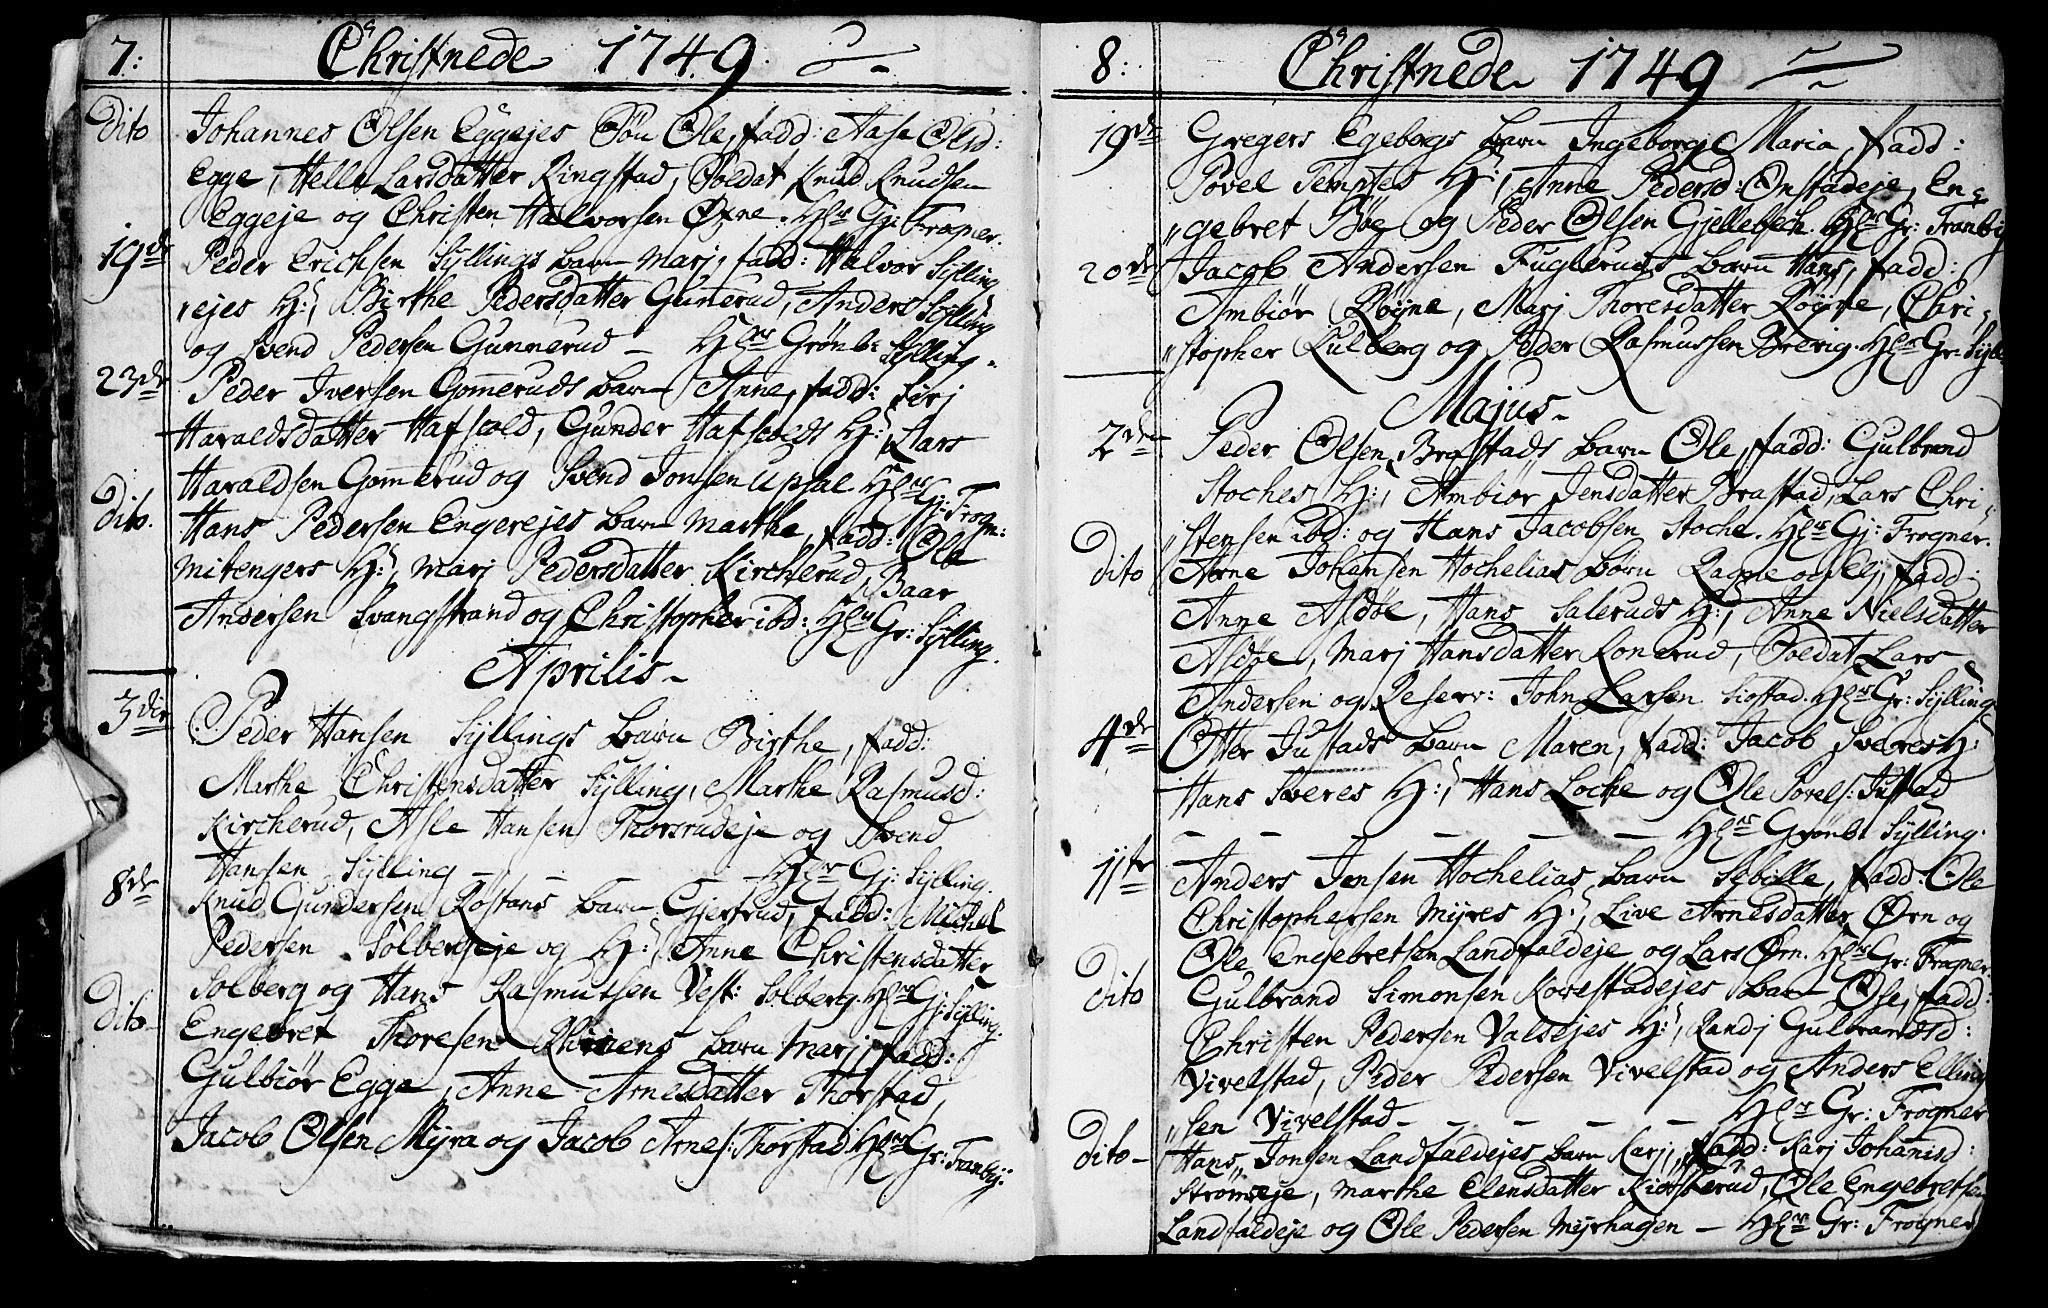 7: Christnede 1749.
Dito Johannes Olsen Eggejes Søn Ole, fadd: Aase Olsd:
Egge, Helle Larsdatter Ringstad, Soldat Knud Knudsen
Eggeje og Christen Halvorsen Oxne. Hr Gj: Frogner.
19de Peder Erichsen Syllings barn Marj, fadd: Halvor Sylling
ejes H:, Birthe Pedersdatter Gunnerud, Anders Sylling
og Svend Pedersen Gunnerud – Hr Grönb: Sylling.
23de Peder Iversen Gomeruds barn Anne, fadd: Sirj
Haraldsdatter Hafsvold, Gunder Hafsvolds H:, Lars
Haraldsen Gomerud og Svend Jonsen Upsal Hr Gj: Frogn:
Dito. Hans Pedersen Engerejes barn Marthe, fadd: Ole
Mitengers H:, Marj Pedersdatter Kircherud, Baar
Andersen Svangstrand og Christopher ibd: Hr Gr: Sylling.
Aprilis
3die Peder Hansen Syllings barn Birthe, fadd:
Marthe Christensdatter Sylling, Marthe Rasmusd:
Kircherud, Asle Hansen Thorsrudeje og Svend
Hansen Sylling – – – Hr Gj: Sylling.
8de Knud Gundersen Röstans barn Gjertrud, fadd: Michel
Pedersen Solbergeje og H:, Anne Christensdatter
Solberg og Hans Rasmussen Vest: Solberg. Hr Gj: Sylling.
Dito Engebret Thoresen barn Marj, fadd:
Gulbiör Egge, Anne Arnesdatter Thorstad,
Jacob Olsen Myra og Jacob Arnes: Thorstad. Hr Gr: Tranby.
8: Christnede 1749
19de Gregers Egebergs barn Ingeborg Maria, fadd:
Povel Tempses H:, Anne Pedersd: Onstadeje, En-
gebret Böe og Peder Olsen Gjellebech. Hr Gr: Tranby
20de Jacob Andersen Fugleruds barn Hans, fadd:
Ambiör Röyne, Marj Thoresdatter Röyne, Chri-
stopher Kulberg og Peder Rasmussen Brerig. Hr Gr: Sylli
Majus
2den Peder Olsen Brastads barn Ole, fadd: Gulbrand
Stoches H:, Ambiör Jensdatter Brastad, Lars Chri-
stensen ibd: og Hans Jacobsen Stoche. Hr Gj: Frogner.
Dito Arne Johansen Hochelias börn Ragne og Elj, fadd:
Anne Aldöe, Hans Saleruds H:, Anne Nielsdatter
Aldöe, Marj Hansdatter Ronerud, Soldat Lars
Andersen og Reserv: John Larsen Siostad. Hr Gr: Sylling
4de Otter Justads barn Maren, fadd: Jacob Sveres H:
Hans Sveres H:, Hans Loche og Ole Povels: Justad
– – – – – Hr Grönb: Sylling.
11te Anders Jensen Hochelias barn Sibille, fadd: Ole
Christophersen Myres H:, Live Arnesdatter Örn og
Ole Engebretsen Landfaldeje og Lars Örn. Hr Gr: Frogner.
Dito Gulbrand Simonsen Kovestadejes barn Ose, fadd:
Christen Pedersen Valsejes H:, Randj Gulbrandsd:
Vivelstad, Peder Pedersen Vivelstad og Anders Elling
sen Vivelstad – – – – – Hr Gr: Frogner
Dito – Hans Jonsen Landfaldejes barn Karj, fadd: Karj Johanisd:
Strömseje, Marthe Elensdatter Kiosterud, Ole Engebretsen
Landfaldeje og Ole Pedersen Myrhagen – Hr Gr: Frogner